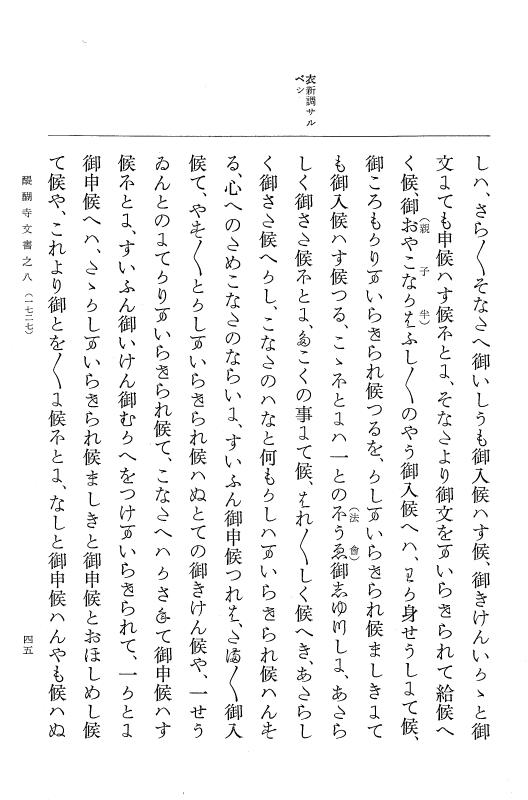 衣新調サル
ベシ
しハ、さら〱そなたへ御いしうも御入候ハす候、御きけんいかゝと御
文にても申候ハす候ほとに、そなたより御文をまいらせられて給候へ
く候、御おやこなかはふし〱のやう御入候へハ、わか身せうしにて候、
(親子半)
御ころもかりまいらせられ候つるを、かしまいらせられ候ましきにて
も御入候ハす候つる、こゝほとにハ一とのほうゑ御しゆつしに、あたら
(法會)
しく御さた候ほとに、たこくの事にて候、はれ〱しく候へき、あたらし
く御さた候へかし、こなたのハなと何もかしハまいらせられ候ハんも
る、心へのためこなたのならいに、すいふん御申候つれは、たま〱御入
候て、やも〱とかしまいらせられ候ハぬとての御きけん候や、一せう
ゐんとのにてかりまいらせられ候て、こなたへハかさねて御申候ハす
候ほとに、すいふん御いけん御むかへをつけまいらせられて、一かとに
御申候へハ、たゝかしまいらせられ候ましきと御申候とおほしめし候
て候や、これより御とを〱に候ほとに、なしと御申候ハんやも候ハぬ
醍醐寺文書之八(一七二七)
四五